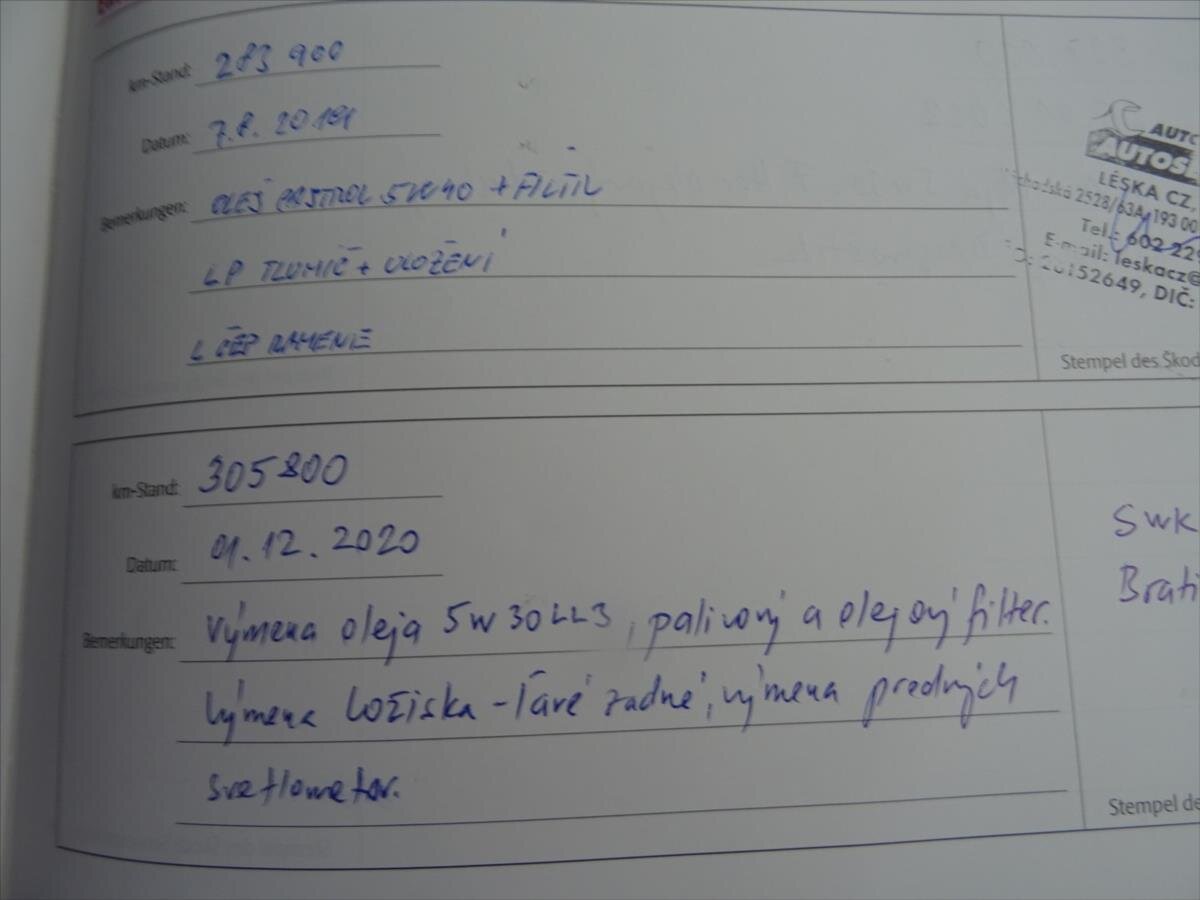 km-Stand: 283 900
Datum: 7.8. 2019
Bemerkungen: OLEJ CASTROL 5W40 + FILTR
LP TLUMIČ + ULOŽENÍ
L ČEP RAMENE
AUTO
AUTOSL
LÉSKA CZ,
2528/63A, 193 00
Tel.: 602 229
E-mail: leskacz@
152649, DIČ:
Stempel des Škod
km-Stand: 305 800
Datum: 01.12.2020
Bemerkungen: Výmena oleja 5W30LL3, palivový a olejový filter.
Výmena ložiska - ľavé zadné, výmena predných
svetlometov.
SWK
Brati
Stempel de